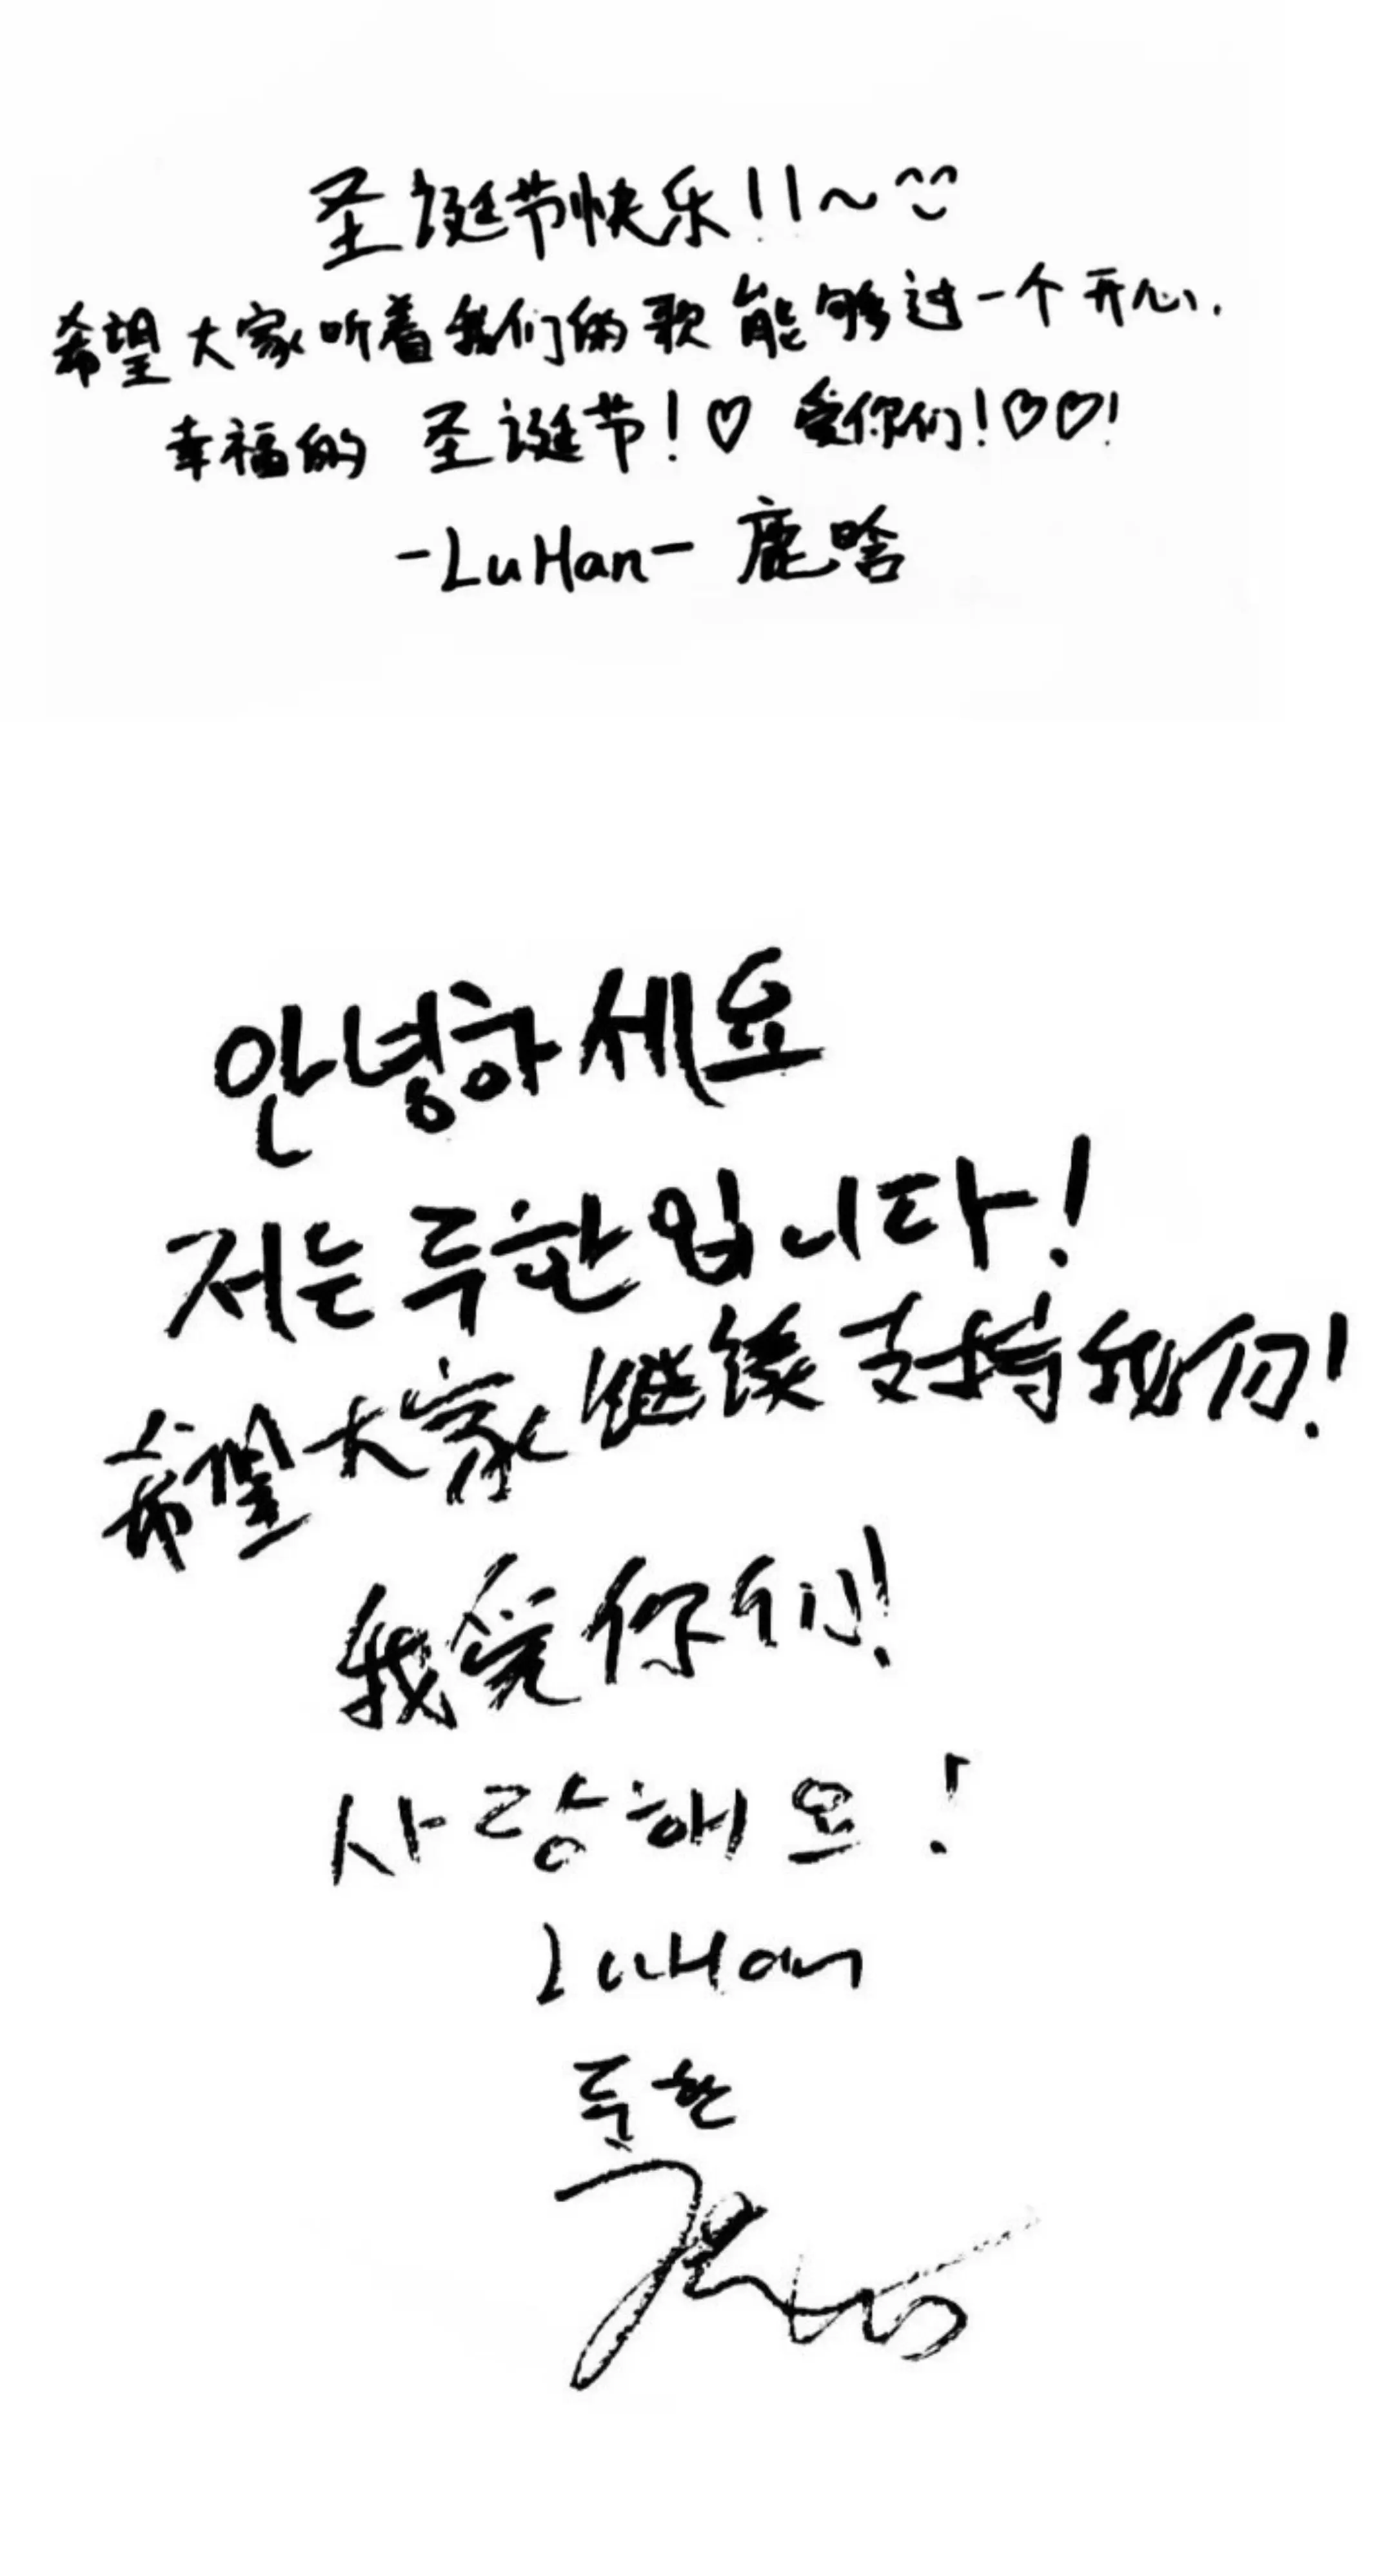 圣诞节快乐!!~^^
希望大家听着我们的歌能够过一个开心,
幸福的 圣诞节!♡ 爱你们!♡♡!
-LuHan- 鹿晗
안녕하세요
저는루한입니다!
希望大家继续支持我们!
我爱你们!
사랑해요!
LuHan
루한